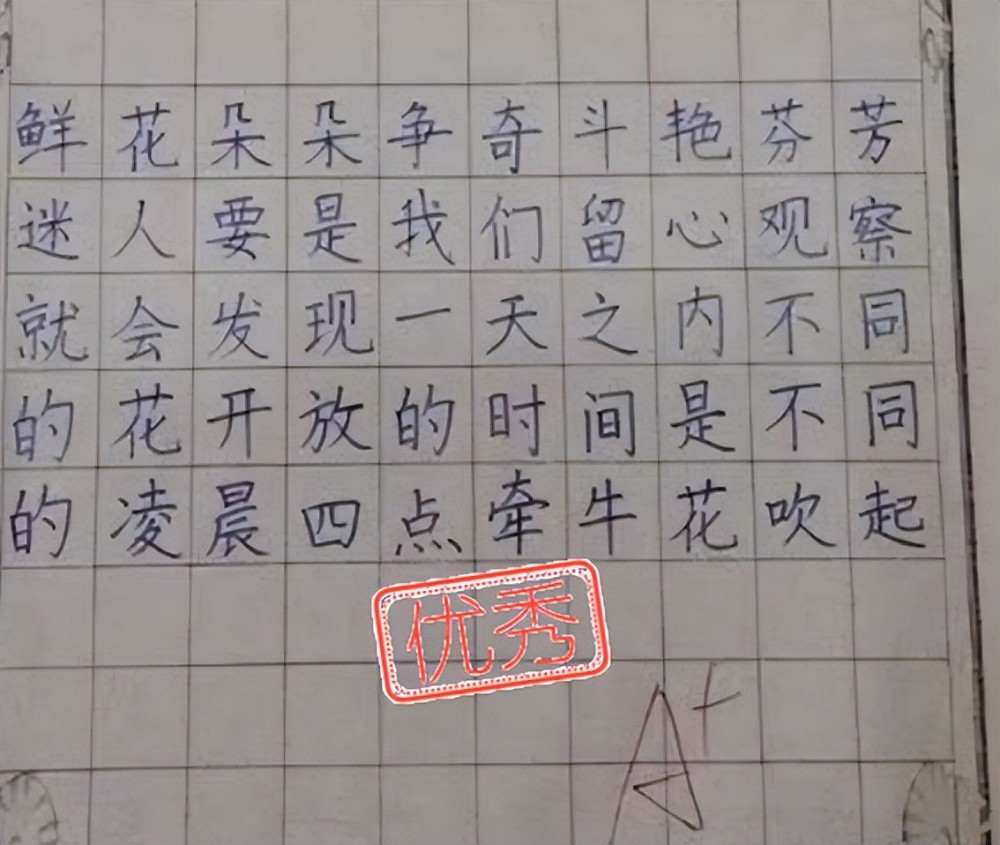 鲜花朵朵争奇斗艳芬芳
迷人要是我们留心观察
就会发现一天之内不同
的花开放的时间是不同
的凌晨四点牵牛花吹起
优秀
A+